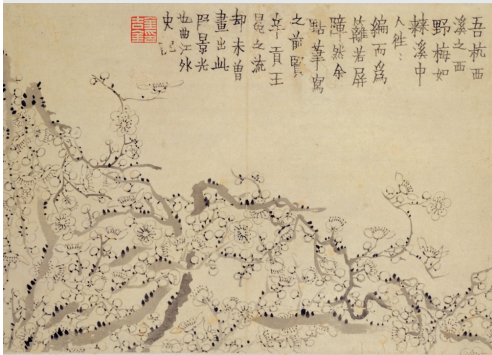 吾杭西
溪之西
野梅如
棘溪中
人徃〻
編而爲
籬若屏
障然余
點筆寫
之前賢
辛貢王
冕之流
却未曾
畫出此
段景光
也曲江外
史記